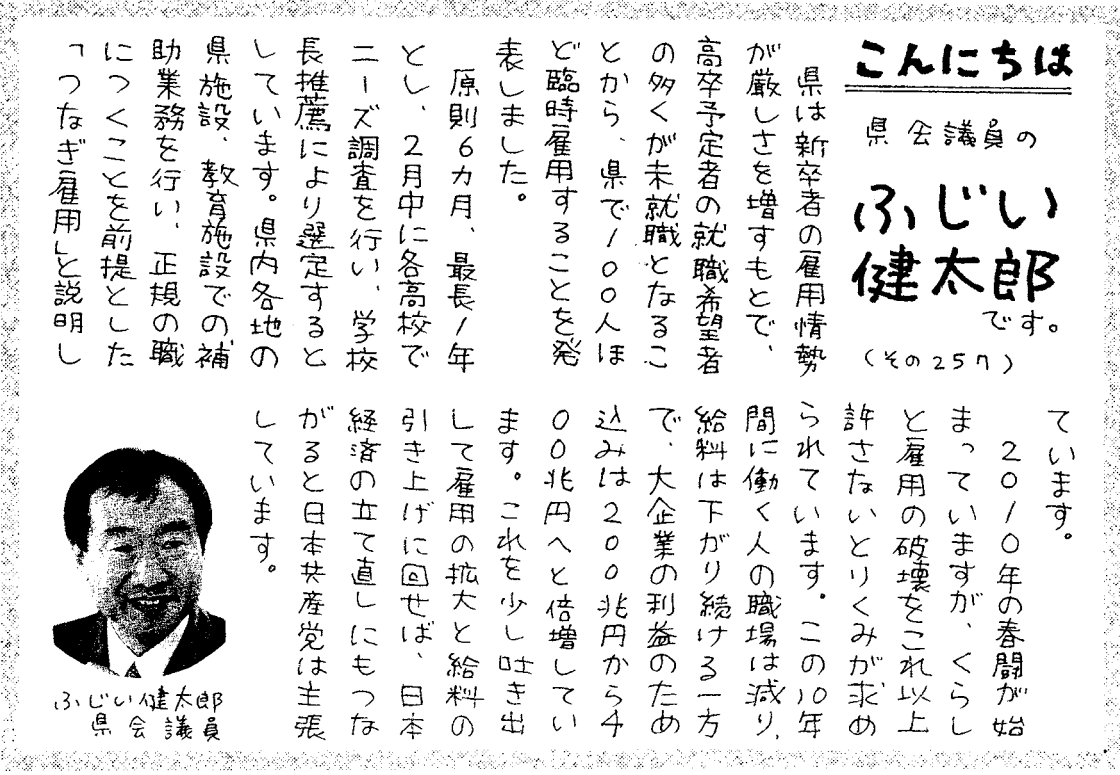 こんにちは
県会議員の
ふじい
健太郎
です。
(その257)
県は新卒者の雇用情勢
が厳しさを増すもとで、
高卒予定者の就職希望者
の多くが未就職となるこ
とから、県で100人ほ
ど臨時雇用することを発
表しました。
原則6カ月、最長1年
とし、2月中に各高校で
ニーズ調査を行い、学校
長推薦により選定すると
しています。県内各地の
県施設、教育施設での補
助業務を行い、正規の職
につくことを前提とした
「つなぎ雇用」と説明し
ています。
2010年の春闘が始
まっていますが、くらし
と雇用の破壊をこれ以上
許さないとりくみが求め
られています。この10年
間に働く人の職場は減り、
給料は下がり続ける一方
で、大企業の利益のため
込みは200兆円から4
00兆円へと倍増してい
ます。これを少し吐き出
して雇用の拡大と給料の
引き上げに回せば、日本
経済の立て直しにもつな
がると日本共産党は主張
しています。
ふじい健太郎
県会議員